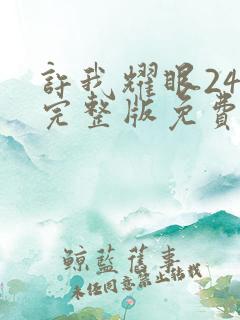 許我耀眼24
完整版免費
鯨藍舊事
未任同意禁止转载